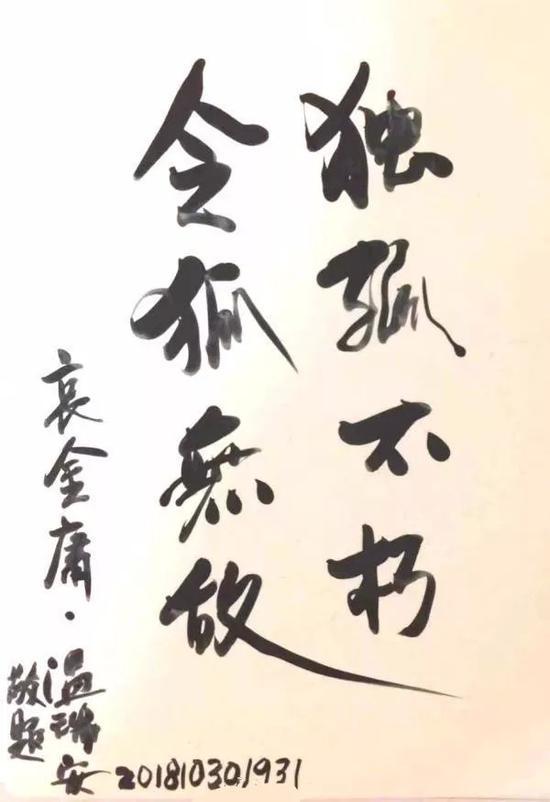 独孤不朽
令狐無故
哀金庸·温瑞安
敬题
201810301931